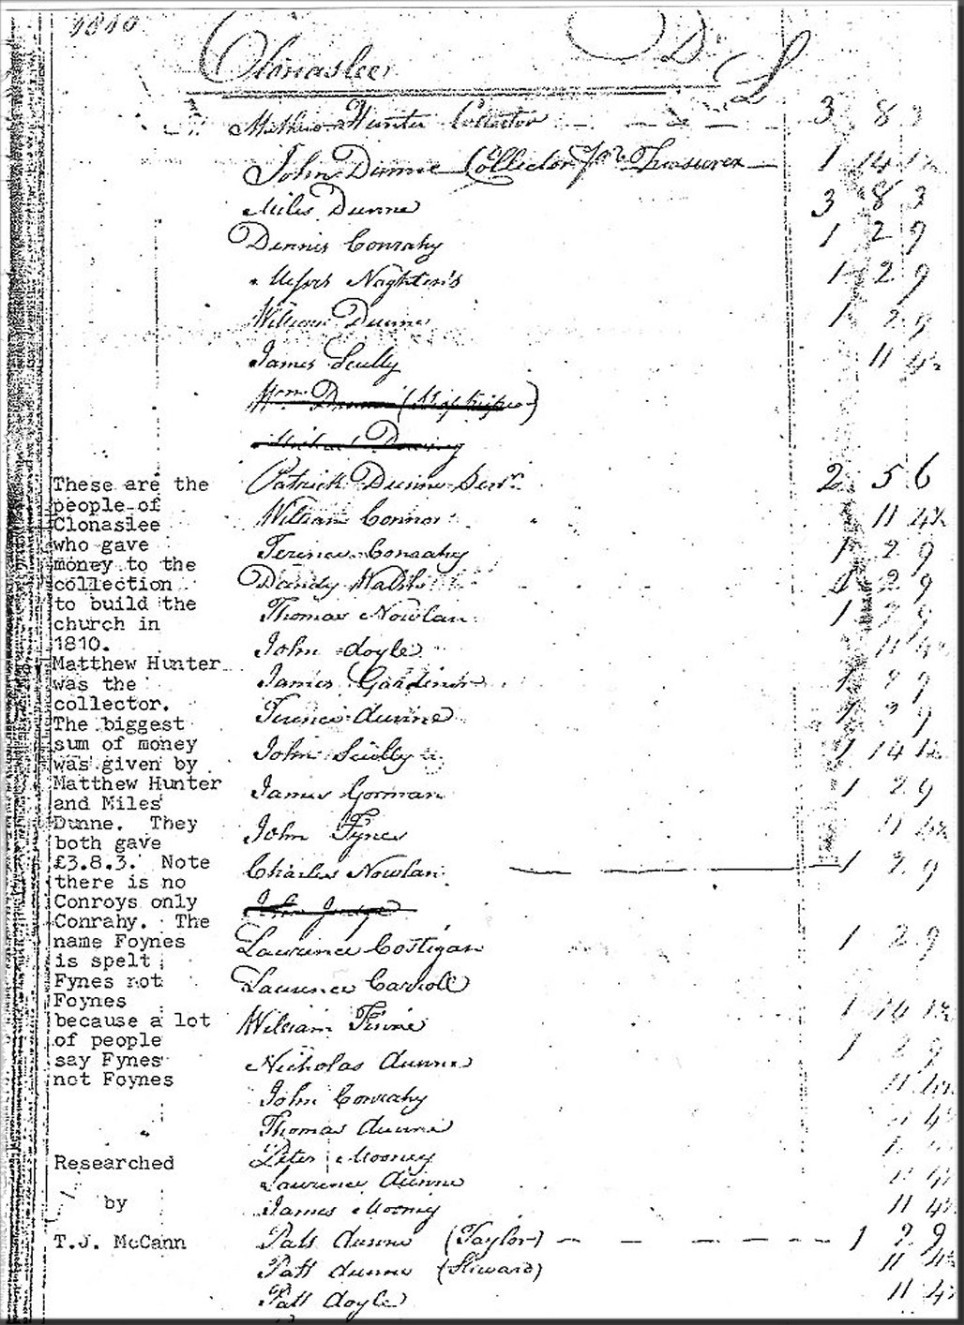 1810
Clonaslee Dr £
Mathew Hunter Collector 3 8 3
John Dunne Collector for Treasurer 1 14 1½
Miles Dunne 3 8 3
Dennis Conrahy 1 2 9
Messrs Naghten's 1 2 9
William Dunne 1 2 9
James Scully 11 4½
Wm Dunne
Patrick Dunne Senr. 2 5 6
William Connor 11 4½
Terence Conrahy 1 2 9
Dandy Walsh 1 2 9
Thomas Nowlan 1 2 9
John doyle 11 4½
James Gardiner 1 2 9
Terence dunne 1 2 9
John Scully 1 14 1½
James Gorman 1 2 9
John Fynes 11 4½
Charles Nowlan 1 2 9
John Judge
Laurence Costigan 1 2 9
Laurence Carroll
William Finne 1 14 1½
Nicholas dunne 1 2 9
John Conrahy 11 4½
Thomas dunne 11 4½
Peter Mooney
Laurence dunne 11 4½
James Mooney 11 4½
Patt dunne (Taylor) 1 2 9
Patt dunne (Steward) 11 4½
Patt doyle 11 4½
These are the
people of
Clonaslee
who gave
money to the
collection
to build the
church in
1810.
Matthew Hunter
was the
collector.
The biggest
sum of money
was given by
Matthew Hunter
and Miles
Dunne. They
both gave
£3.8.3. Note
there is no
Conroys only
Conrahy. The
name Foynes
is spelt
Fynes not
Foynes
because a lot
of people
say Fynes
not Foynes
Researched
by
T.J. McCann